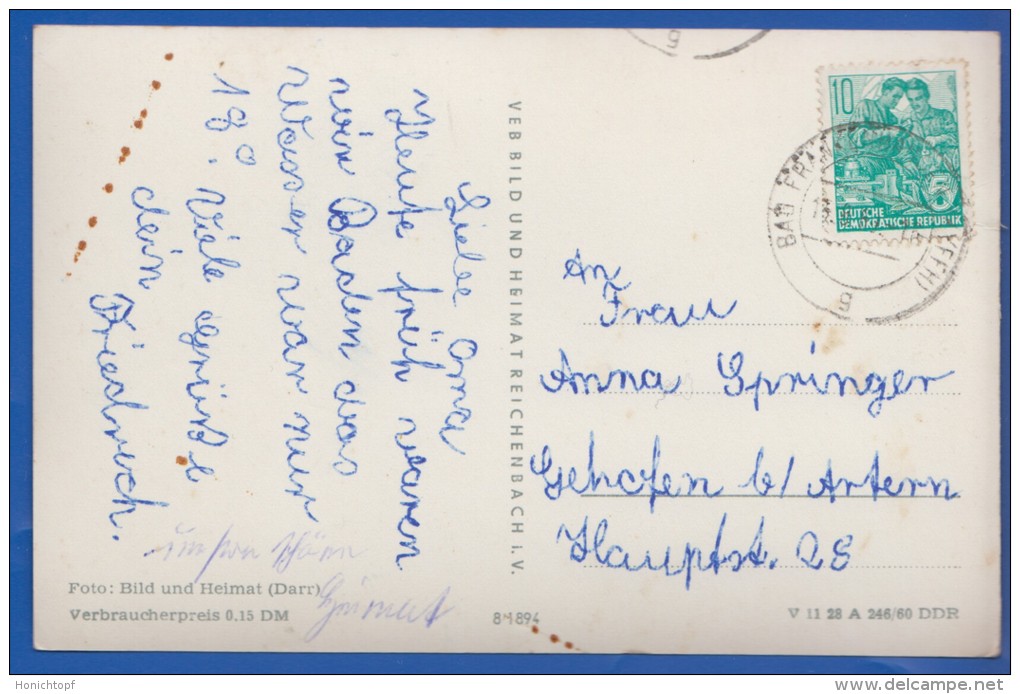 Liebe Oma
Heute früh waren
wir Baden das
Wasser war nur
18°. Viele Grüße
dein
Friedrich.
unsere schöne
Heimat
Foto: Bild und Heimat (Darr)
Verbraucherpreis 0,15 DM
VEB BILD UND HEIMAT REICHENBACH i. V.
8-1894
10
DEUTSCHE
DEMOKRATISCHE REPUBLIK
BAD FRAN
(KYFFH)
g
g
An
Frau
Anna Springer
Gehofen b/ Artern
Hauptst. 28
V 11 28 A 246/60 DDR
Honichtopf
www.delcampe.net